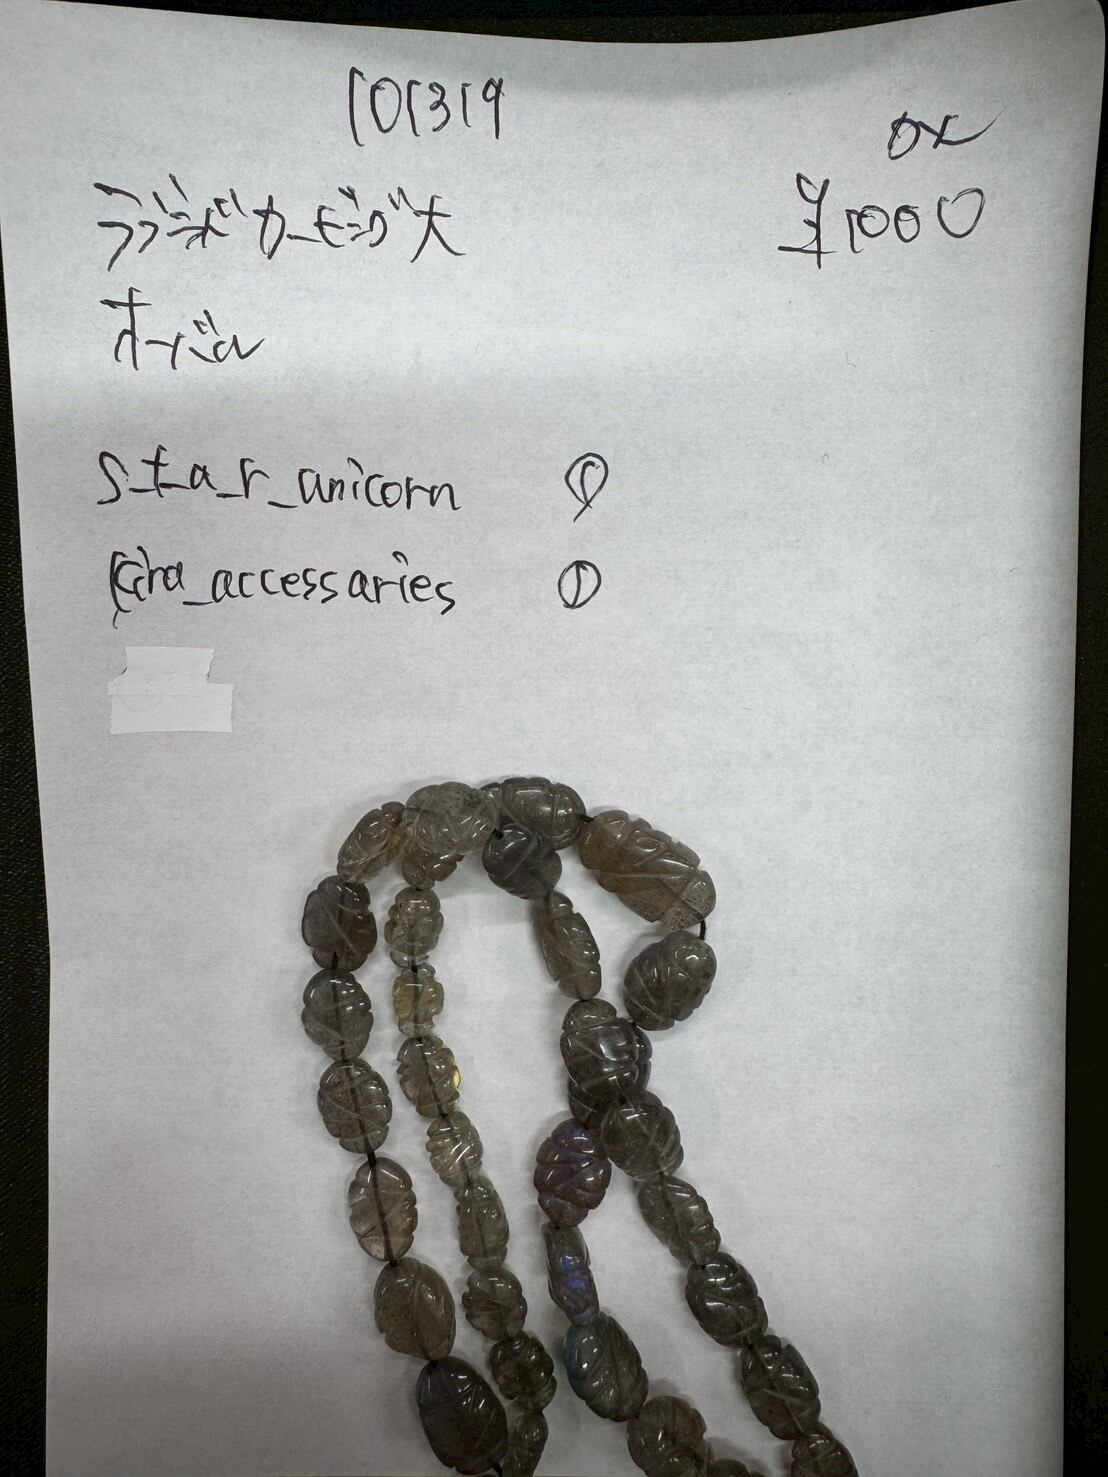 101319
ox
ラブラドカービング大
¥1000
オーバル
s_t_a_r_unicorn ①
kira_accessaries ①